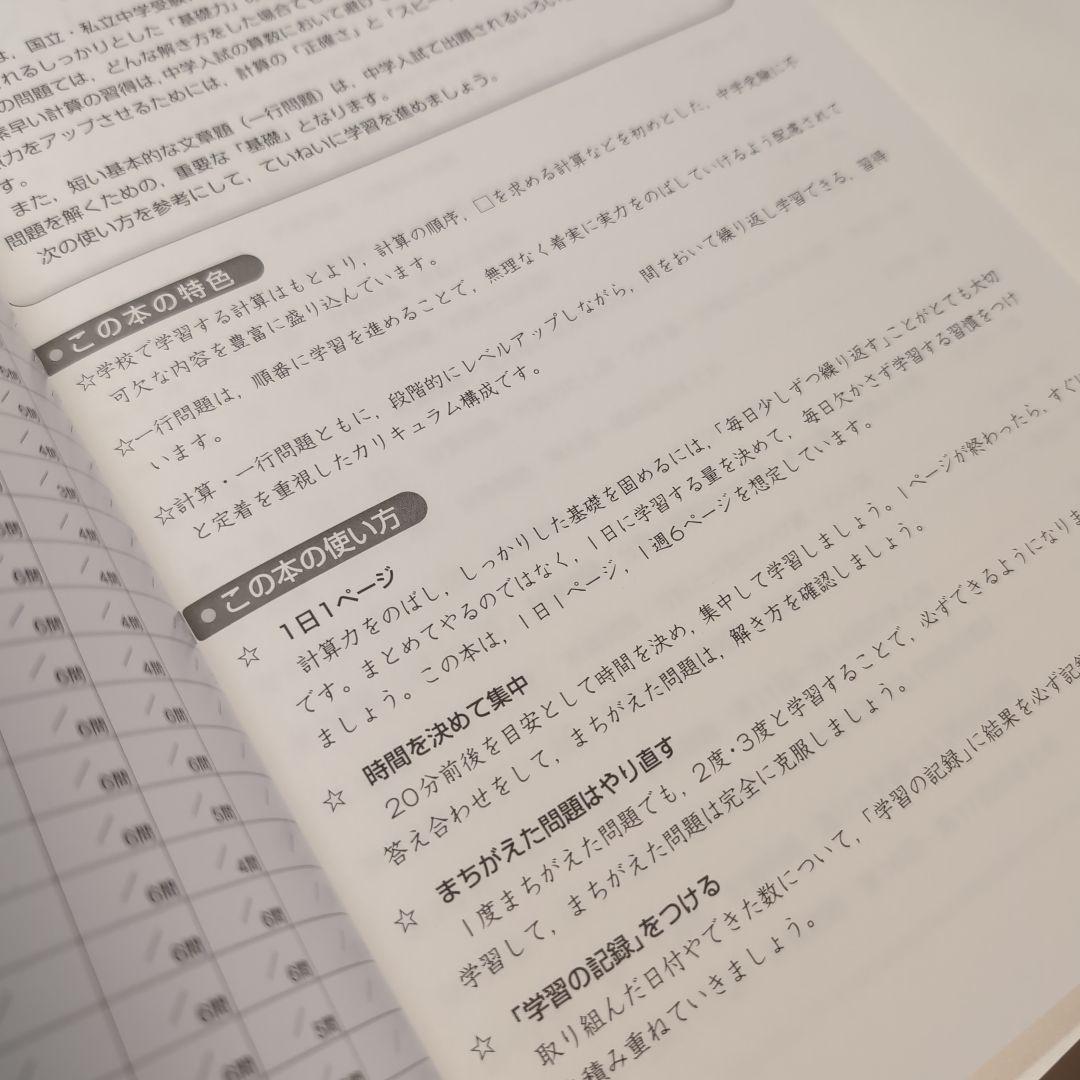 は，国立・私立中学受験
れるしっかりとした「基礎力」
の問題では，どんな解き方をした場合でも
素早い計算の習得は，中学入試の算数において避け
力をアップさせるためには，計算の「正確さ」と「スピー
す。
また，短い基本的な文章題（一行問題）は，中学入試で出題されるいろい
問題を解くための，重要な「基礎」となります。
次の使い方を参考にして，ていねいに学習を進めましょう。
●この本の特色
☆学校で学習する計算はもとより，計算の順序，□を求める計算などを初めとした，中学受験に不
可欠な内容を豊富に盛り込んでいます。
☆一行問題は，順番に学習を進めることで，無理なく着実に実力をのばしていけるよう配慮されて
います。
☆計算・一行問題ともに，段階的にレベルアップしながら，間をおいて繰り返し学習できる，習得
と定着を重視したカリキュラム構成です。
●この本の使い方
☆ 1日1ページ
計算力をのばし，しっかりした基礎を固めるには，「毎日少しずつ繰り返す」ことがとても大切
です。まとめてやるのではなく，1日に学習する量を決めて，毎日欠かさず学習する習慣をつけ
ましょう。この本は，1日1ページ，1週6ページを想定しています。
☆ 時間を決めて集中
20分前後を目安として時間を決め，集中して学習しましょう。1ページが終わったら，すぐに
答え合わせをして，まちがえた問題は，解き方を確認しましょう。
☆ まちがえた問題はやり直す
1度まちがえた問題でも，2度・3度と学習することで，必ずできるようになりま
学習して，まちがえた問題は完全に克服しましょう。
☆ 「学習の記録」をつける
取り組んだ日付やできた数について，「学習の記録」に結果を必ず記録
積み重ねていきましょう。
/6問
/4問
/3問
/6問 /4問
/6問 /4問
/6問 /4問
/6問 /6問
/6問 /6問
/6問 /5問
/6問 /4問
/6問 /6問
/6問 /6問
/6問 /5問